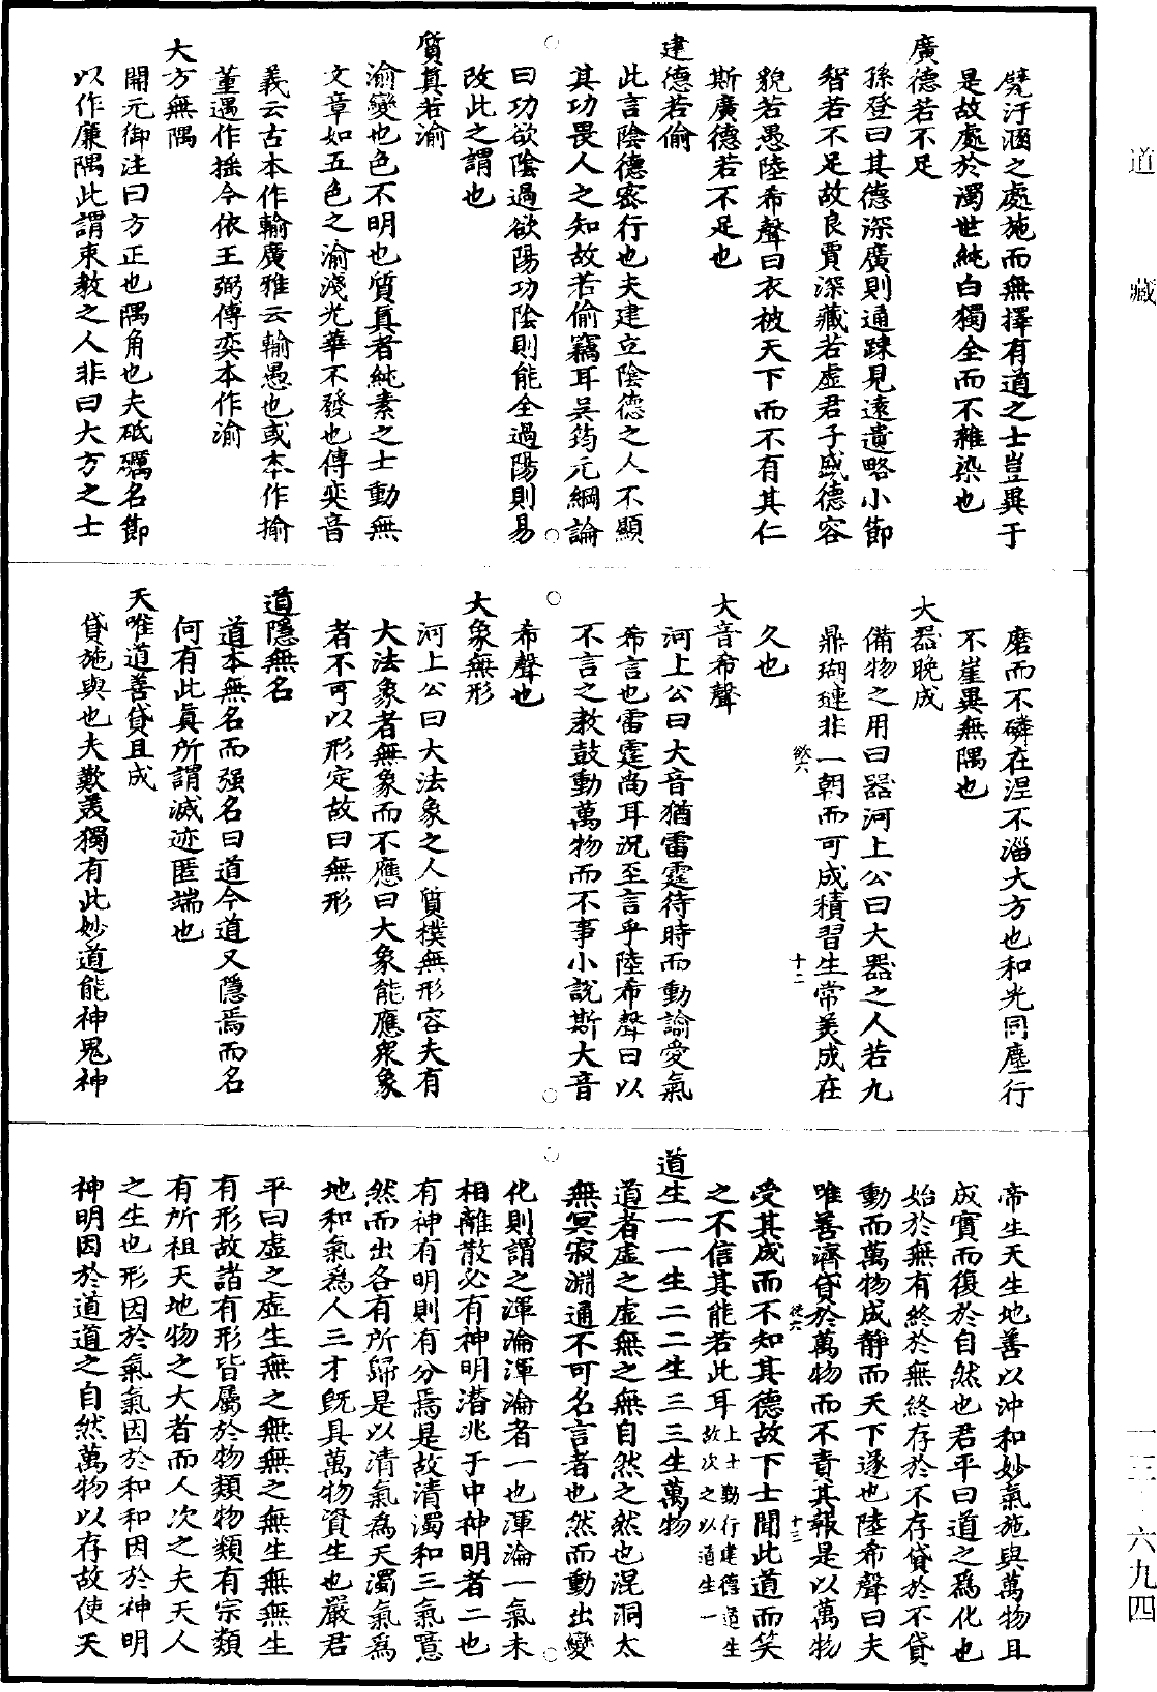 道藏
凳汙涵之處施而無擇有道之士豈異于
是故處於濁世純白獨全而不雜染也
廣德若不足
孫登曰其德深廣則通踈見遠遺略小節
智若不足故良賈深藏若虛君子盛德容
貌若愚陸希聲曰衣被天下而不有其仁
斯廣德若不足也
建德若偷
此言陰德密行也夫建立陰德之人不顯
其功畏人之知故若偷竊耳吳筠元綱論
曰功欲陰過欲陽功陰則能全過陽則易
改此之謂也
質真若渝
渝變也色不明也質真者純素之士動無
文章如五色之渝淺光華不發也傅奕音
義云古本作輸廣雅云輸愚也或本作揄
董遇作摇今依王弼傅奕本作渝
大方無隅
開元御注曰方正也隅角也夫砥礪名節
以作廉隅此謂束教之人非曰大方之士
磨而不磷在涅不淄大方也和光同塵行
不崖異無隅也
大器晚成
備物之用曰器河上公曰大器之人若九
鼎瑚璉非一朝而可成積習生常美成在
久也
大音希聲
河上公曰大音猶雷霆待時而動諭愛氣
希言也雷霆尚耳況至言乎陸希聲曰以
不言之教鼓動萬物而不事小説斯大音
希聲也
大象無形
河上公曰大法象之人質樸無形容夫有
大法象者無象而不應曰大象能應衆象
者不可以形定故曰無形
道隱無名
道本無名而强名曰道今道又隱焉而名
何有此真所謂滅迹匿端也
夫唯道善貸且成
貸施與也夫歎羨獨有此妙道能神鬼神
帝生天生地善以沖和妙氣施與萬物且
成實而復於自然也君平曰道之爲化也
始於無有終於無終存於不存貸於不貸
動而萬物成静而天下遂也陸希聲曰夫
唯善濟貸於萬物而不責其報是以萬物
受其成而不知其德故下士聞此道而笑
之不信其能若此耳上士勤行建德道生故次之以道生一
道生一一生二二生三三生萬物
道者虛之虛無之無自然之然也混洞太
無冥寂淵通不可名言者也然而動出變
化則謂之渾淪渾淪者一也渾淪一氣未
相離散必有神明潛兆于中神明者二也
有神有明則有分焉是故清濁和三氣噫
然而出各有所歸是以清氣爲天濁氣爲
地和氣爲人三才既具萬物資生也嚴君
平曰虛之虛生無之無無之無生無無生
有形故諸有形皆屬於物類物類有宗類
有所祖天地物之大者而人次之夫天人
之生也形因於氣氣因於和和因於神明
神明因於道道之自然萬物以存故使天
一三·六九四